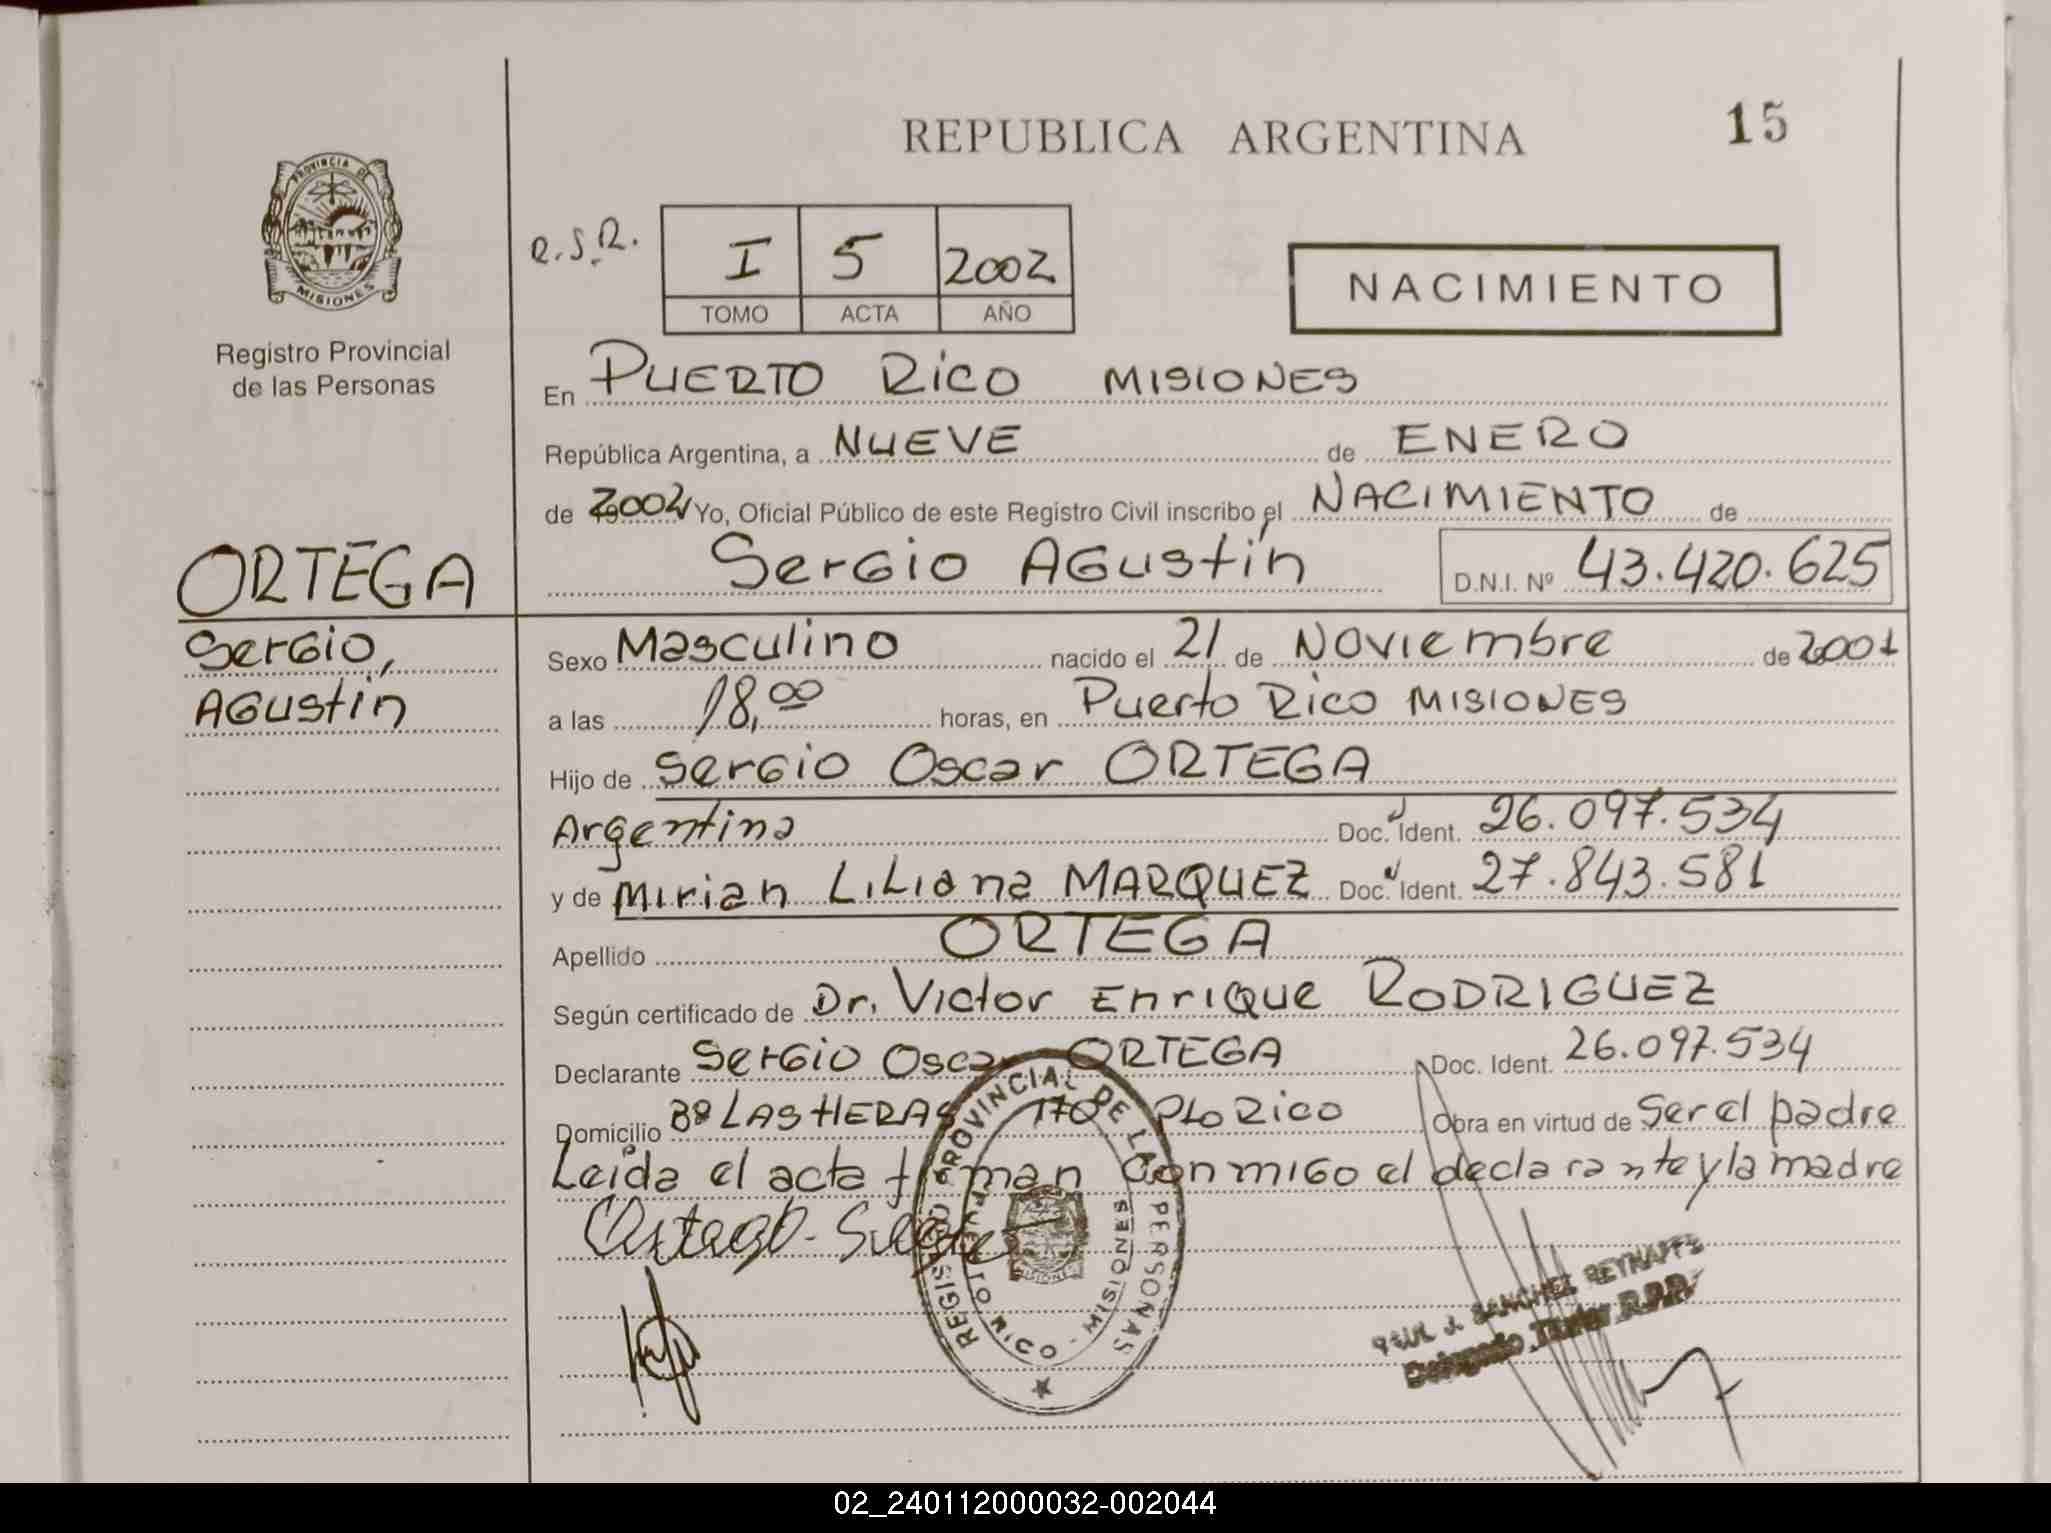 REPUBLICA ARGENTINA
15
PROVINCIA DE
MISIONES
Registro Provincial
de las Personas
R.S.R.
I 5 2002
TOMO ACTA AÑO
NACIMIENTO
En PUERTO RICO MISIONES
República Argentina, a NUEVE de ENERO
de 2002 Yo, Oficial Público de este Registro Civil inscribo el NACIMIENTO de
Sergio Agustín D.N.I. Nº 43.420.625
ORTEGA
Sergio,
Agustín
Sexo Masculino nacido el 21 de Noviembre de 2001
a las 18,00 horas, en Puerto Rico MISIONES
Hijo de Sergio Oscar ORTEGA
Argentina Doc. Ident. 26.097.534
y de Mirian Liliana MARQUEZ Doc. Ident. 27.843.581
Apellido ORTEGA
Según certificado de Dr. Victor Enrique RODRIGUEZ
Declarante Sergio Oscar ORTEGA Doc. Ident. 26.097.534
Domicilio Bº LAS HERAS 170 Pto Rico Obra en virtud de Ser el padre
Leída el acta firman conmigo el declarante y la madre
REGISTRO PROVINCIAL DE LAS PERSONAS
PUERTO RICO - MISIONES
SANCHEZ REYNAFFE
Delegado Titular R.P.P.
02_240112000032-002044